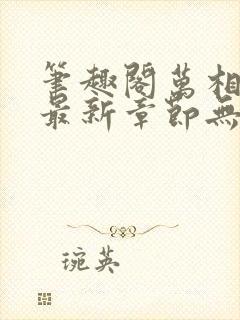 筆趣閣萬相
最新章節無
琬英